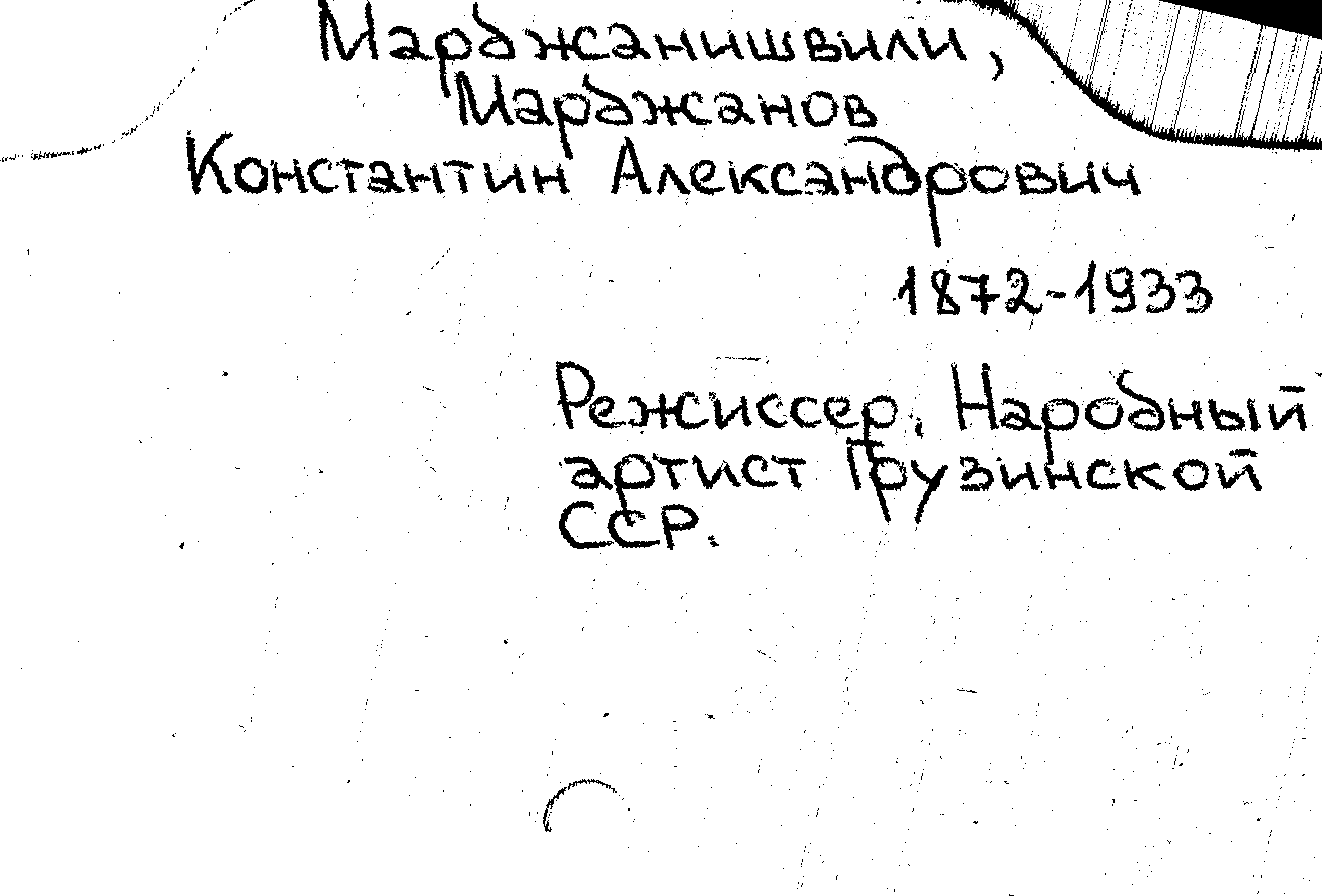 Марджанишвили,
Марджанов
Константин Александрович
1872-1933
Режиссер. Народный
артист Грузинской
ССР.